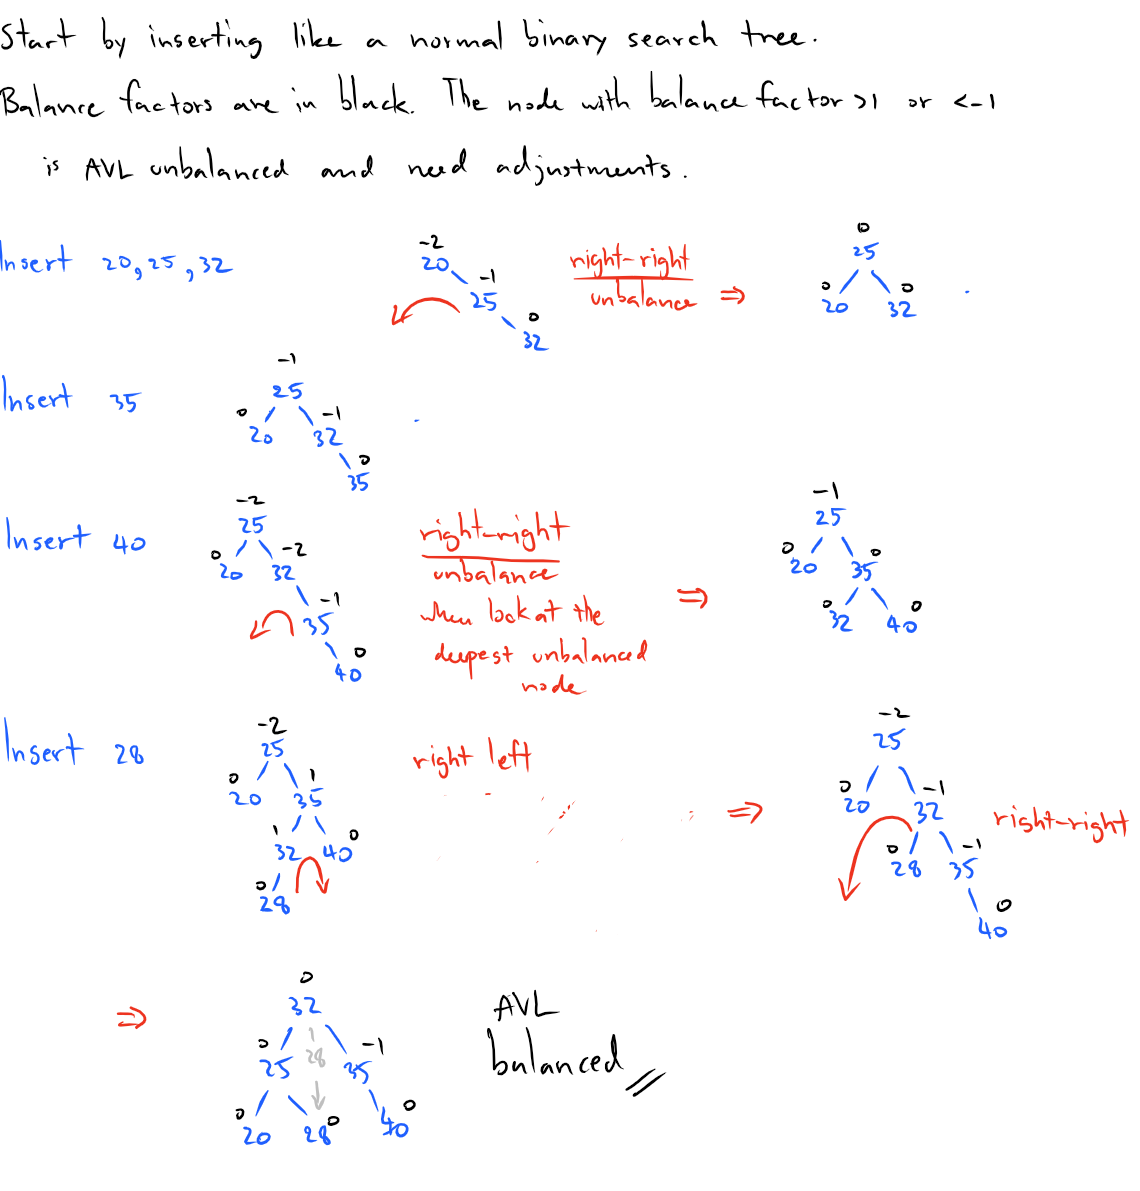 Start by inserting like a normal binary search tree.
Balance factors are in black. The node with balance factor >1 or <-1
is AVL unbalanced and need adjustments.
Insert 20,25,32
-2
20
-1
25
0
32
right-right
unbalance ⇒
0
25
0 0
20 32
Insert 35
-1
25
0 -1
20 32
0
35
Insert 40
-2
25
0 -2
20 32
-1
35
0
40
right-right
unbalance
when look at the
deepest unbalanced
node
⇒
-1
25
0 0
20 35
0 0
32 40
Insert 28
-2
25
0 1
20 35
1 0
32 40
0
28
right left
⇒
-2
25
0 -1
20 32
right-right
0 -1
28 35
0
40
⇒
0
32
0 28 -1
25 35
0 0 0
20 28 40
AVL
balanced